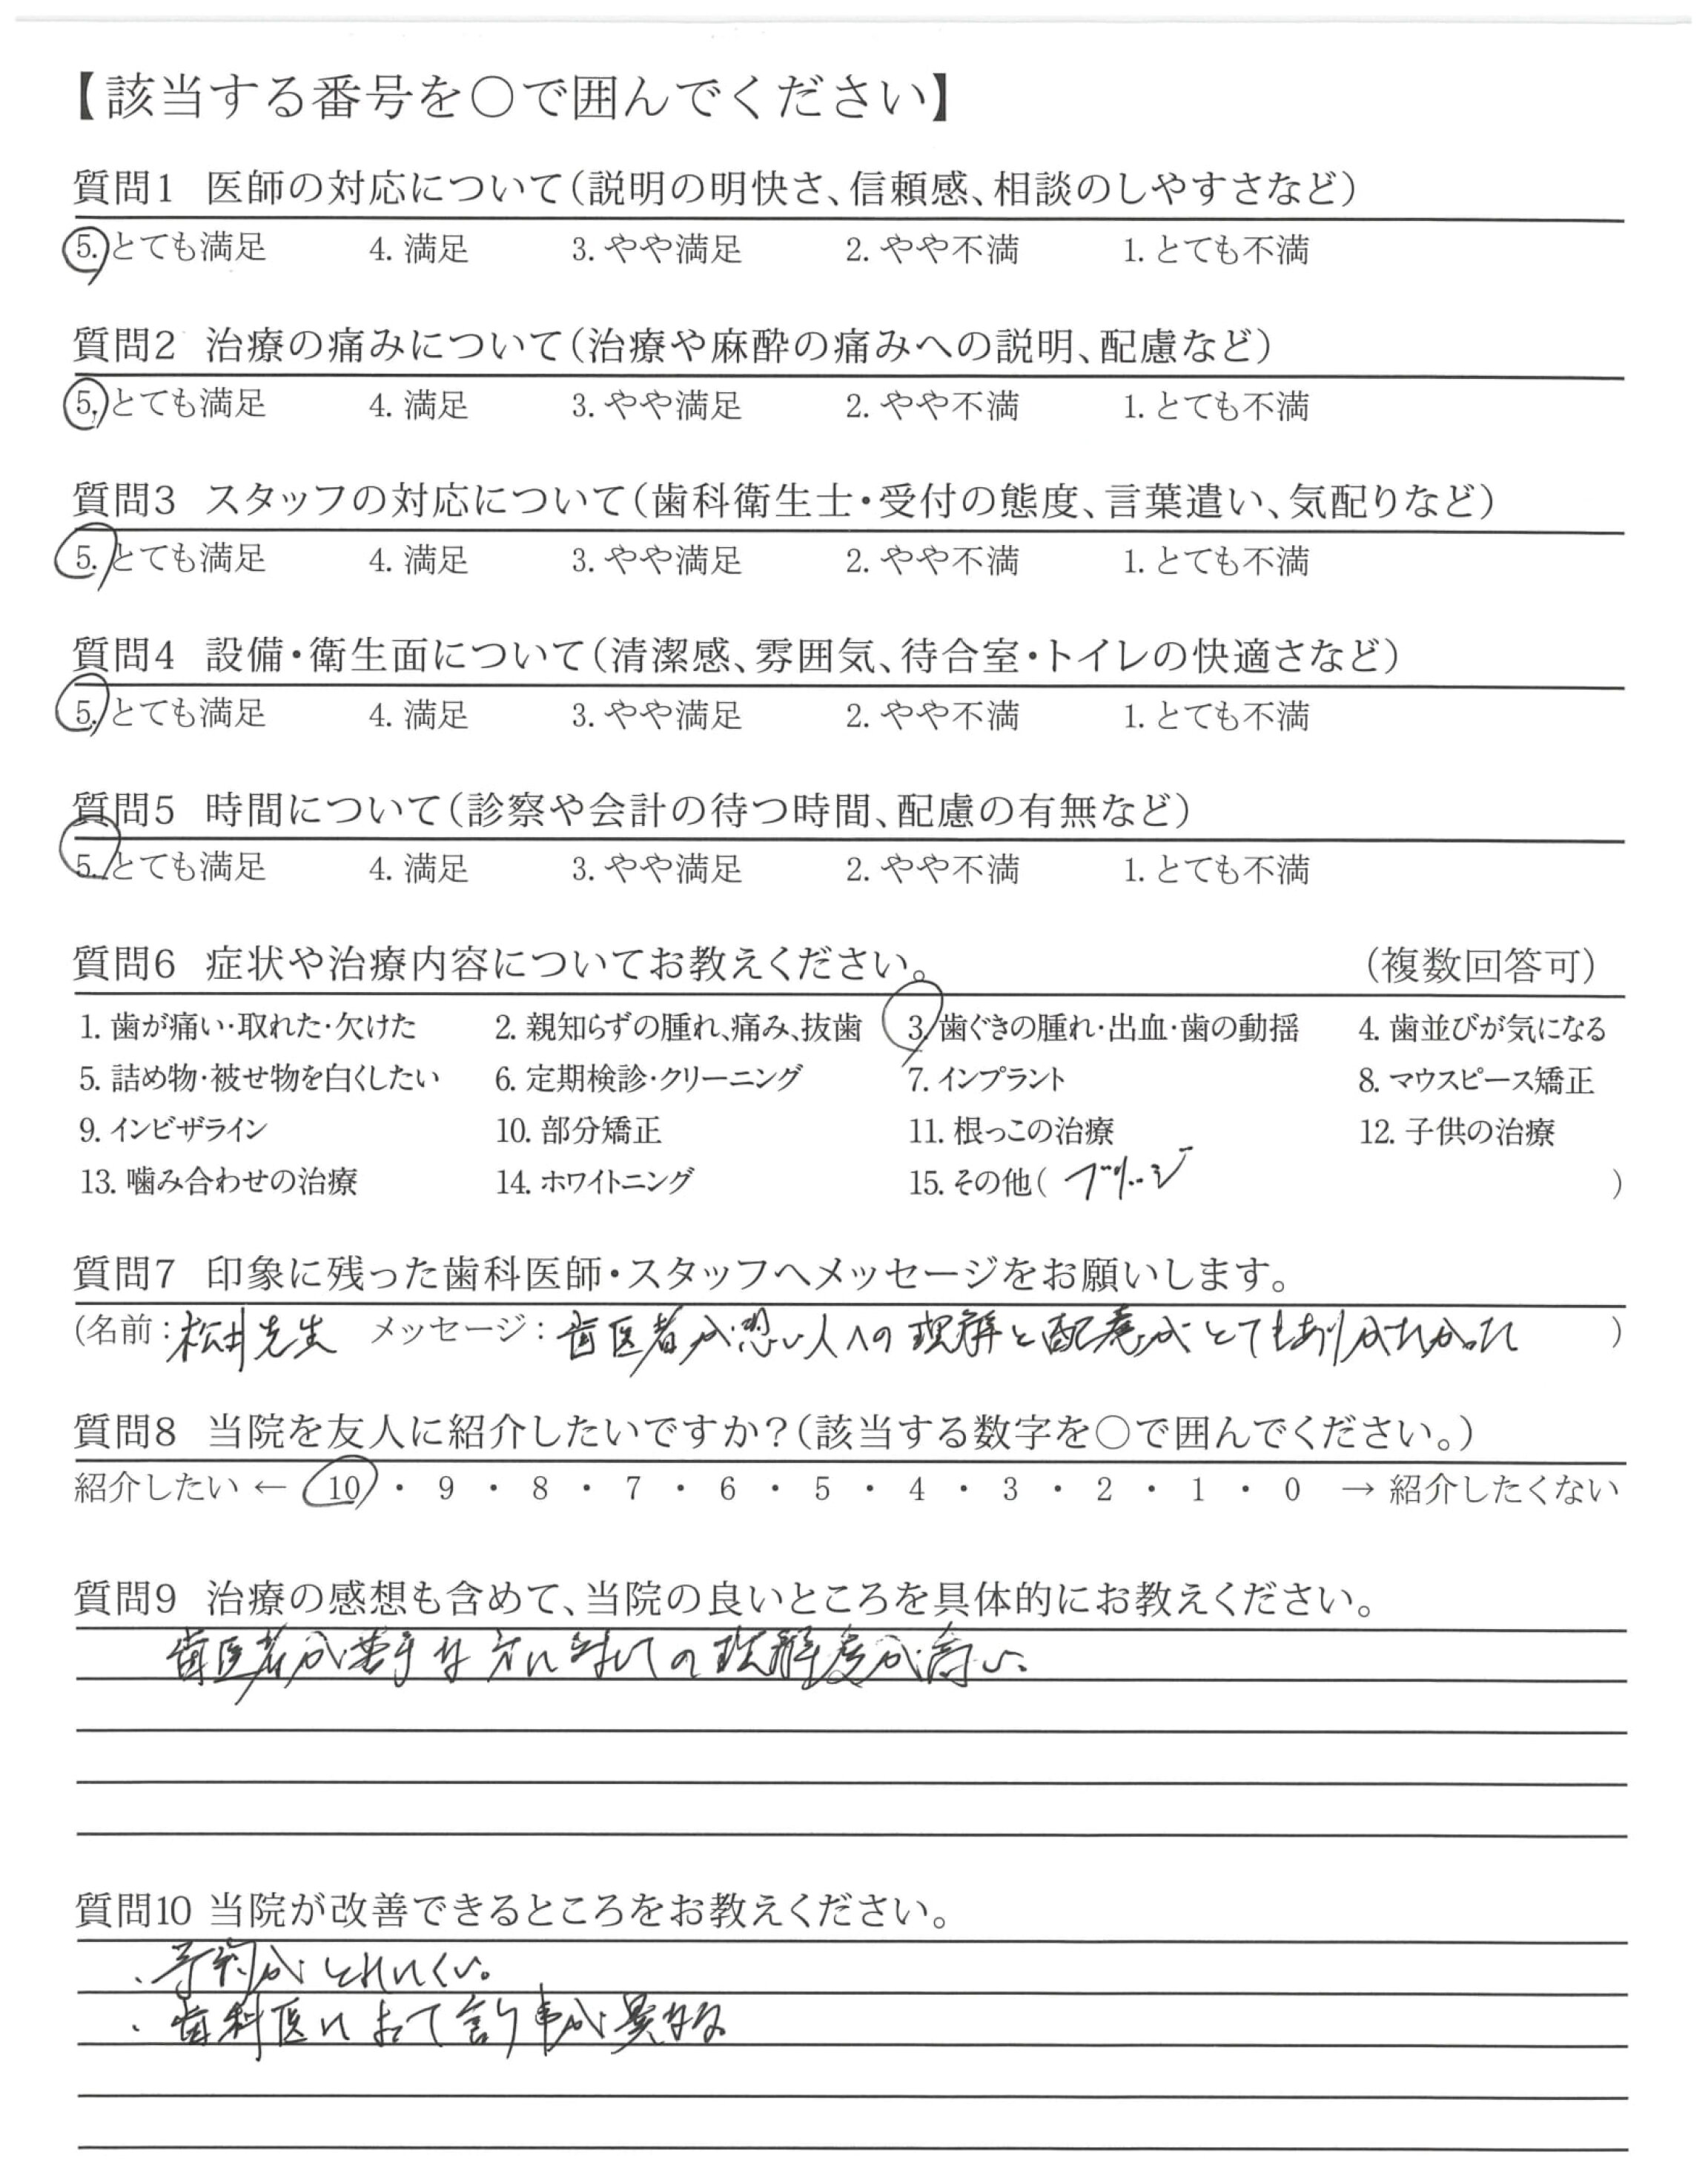 【該当する番号を○で囲んでください】
質問1 医師の対応について（説明の明快さ、信頼感、相談のしやすさなど）
5. とても満足 4. 満足 3. やや満足 2. やや不満 1. とても不満
質問2 治療の痛みについて（治療や麻酔の痛みへの説明、配慮など）
5. とても満足 4. 満足 3. やや満足 2. やや不満 1. とても不満
質問3 スタッフの対応について（歯科衛生士・受付の態度、言葉遣い、気配りなど）
5. とても満足 4. 満足 3. やや満足 2. やや不満 1. とても不満
質問4 設備・衛生面について（清潔感、雰囲気、待合室・トイレの快適さなど）
5. とても満足 4. 満足 3. やや満足 2. やや不満 1. とても不満
質問5 時間について（診察や会計の待つ時間、配慮の有無など）
5. とても満足 4. 満足 3. やや満足 2. やや不満 1. とても不満
質問6 症状や治療内容についてお教えください。 （複数回答可）
1. 歯が痛い・取れた・欠けた 2. 親知らずの腫れ、痛み、抜歯 3. 歯ぐきの腫れ・出血・歯の動揺 4. 歯並びが気になる
5. 詰め物・被せ物を白くしたい 6. 定期検診・クリーニング 7. インプラント 8. マウスピース矯正
9. インビザライン 10. 部分矯正 11. 根っこの治療 12. 子供の治療
13. 噛み合わせの治療 14. ホワイトニング 15. その他( ブリッジ )
質問7 印象に残った歯科医師・スタッフへメッセージをお願いします。
(名前：松井先生 メッセージ：歯医者が恐い人への理解と配慮がとてもありがたかった )
質問8 当院を友人に紹介したいですか？（該当する数字を○で囲んでください。）
紹介したい ← 10 ・ 9 ・ 8 ・ 7 ・ 6 ・ 5 ・ 4 ・ 3 ・ 2 ・ 1 ・ 0 → 紹介したくない
質問9 治療の感想も含めて、当院の良いところを具体的にお教えください。
歯医者が苦手な方に対しての理解度が高い
質問10 当院が改善できるところをお教えください。
・予約がとれにくい。
・歯科医によって言う事が異なる